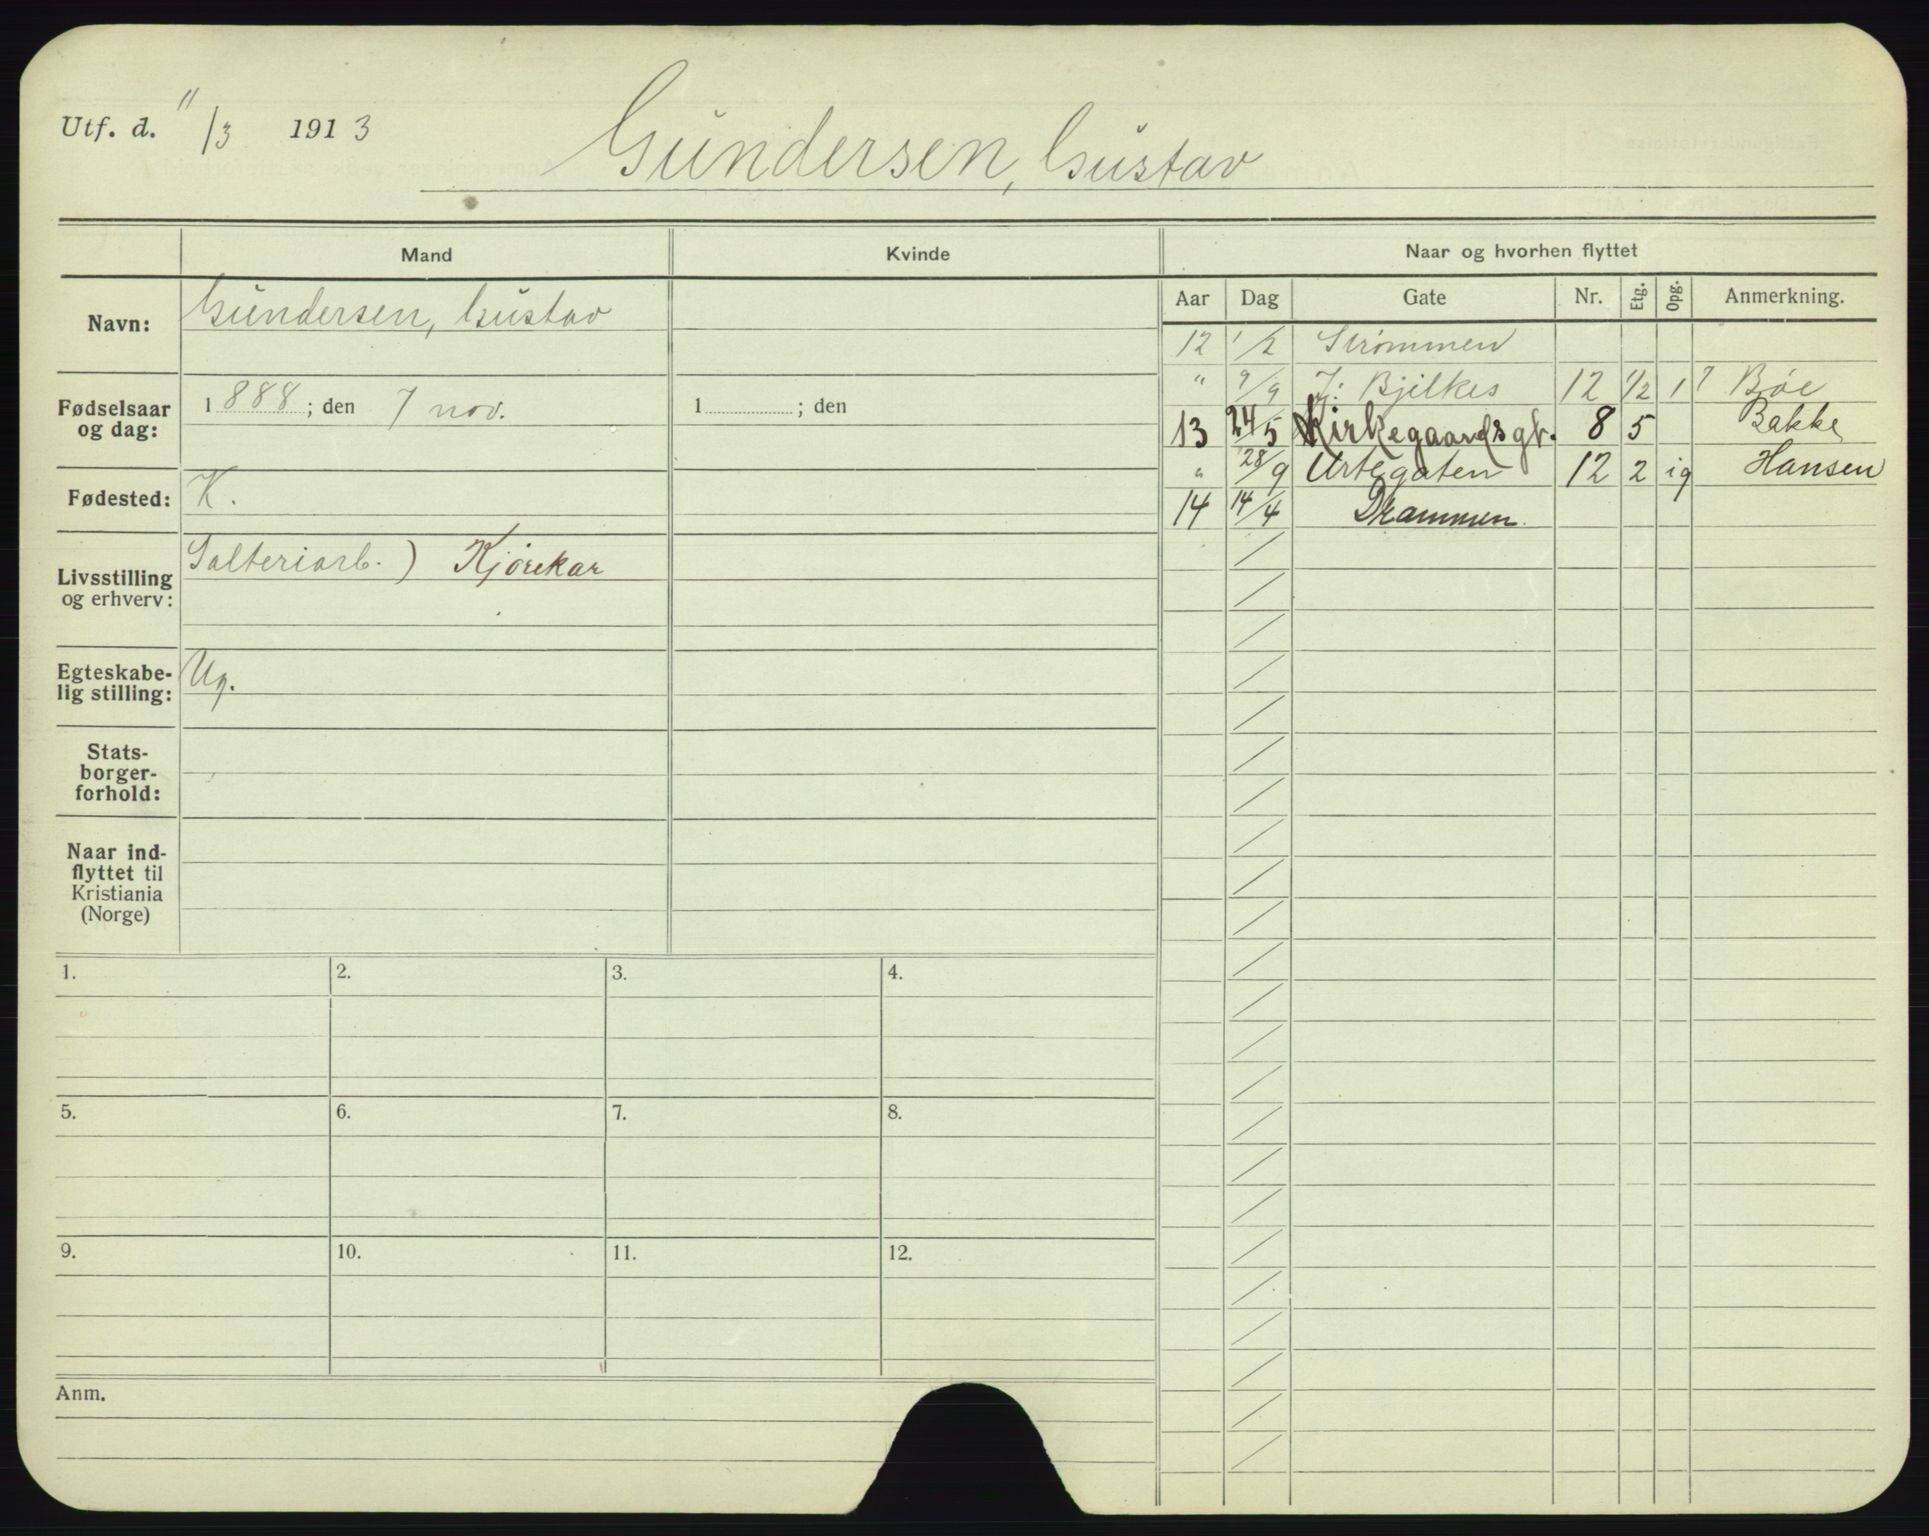 Utf. d. 11/3 1913
Gundersen, Gustav
Mand
Kvinde
Naar og hvorhen flyttet
Navn: Gundersen, Gustav
Fødselsaar og dag: 1888; den 7 nov.
1 ; den
Fødested: K.
Livsstilling og erhverv: Salteriarb. ) Kjørekar
Egteskabe-
lig stilling: Ug.
Stats-
borger-
forhold:
Naar ind-
flyttet til
Kristiania
(Norge)
Aar Dag Gate Nr. Etg. Opg. Anmerkning.
12 1/2 Strømmen
" 9/9 J. Bjelkes 12 1/2 1 ? Bøe
13 24/5 Kirkegaardsgt. 8 5 Bakke
" 28/9 Urtegaten 12 2 ig Hansen
14 14/4 Drammen.
1. 2. 3. 4.
5. 6. 7. 8.
9. 10. 11. 12.
Anm.